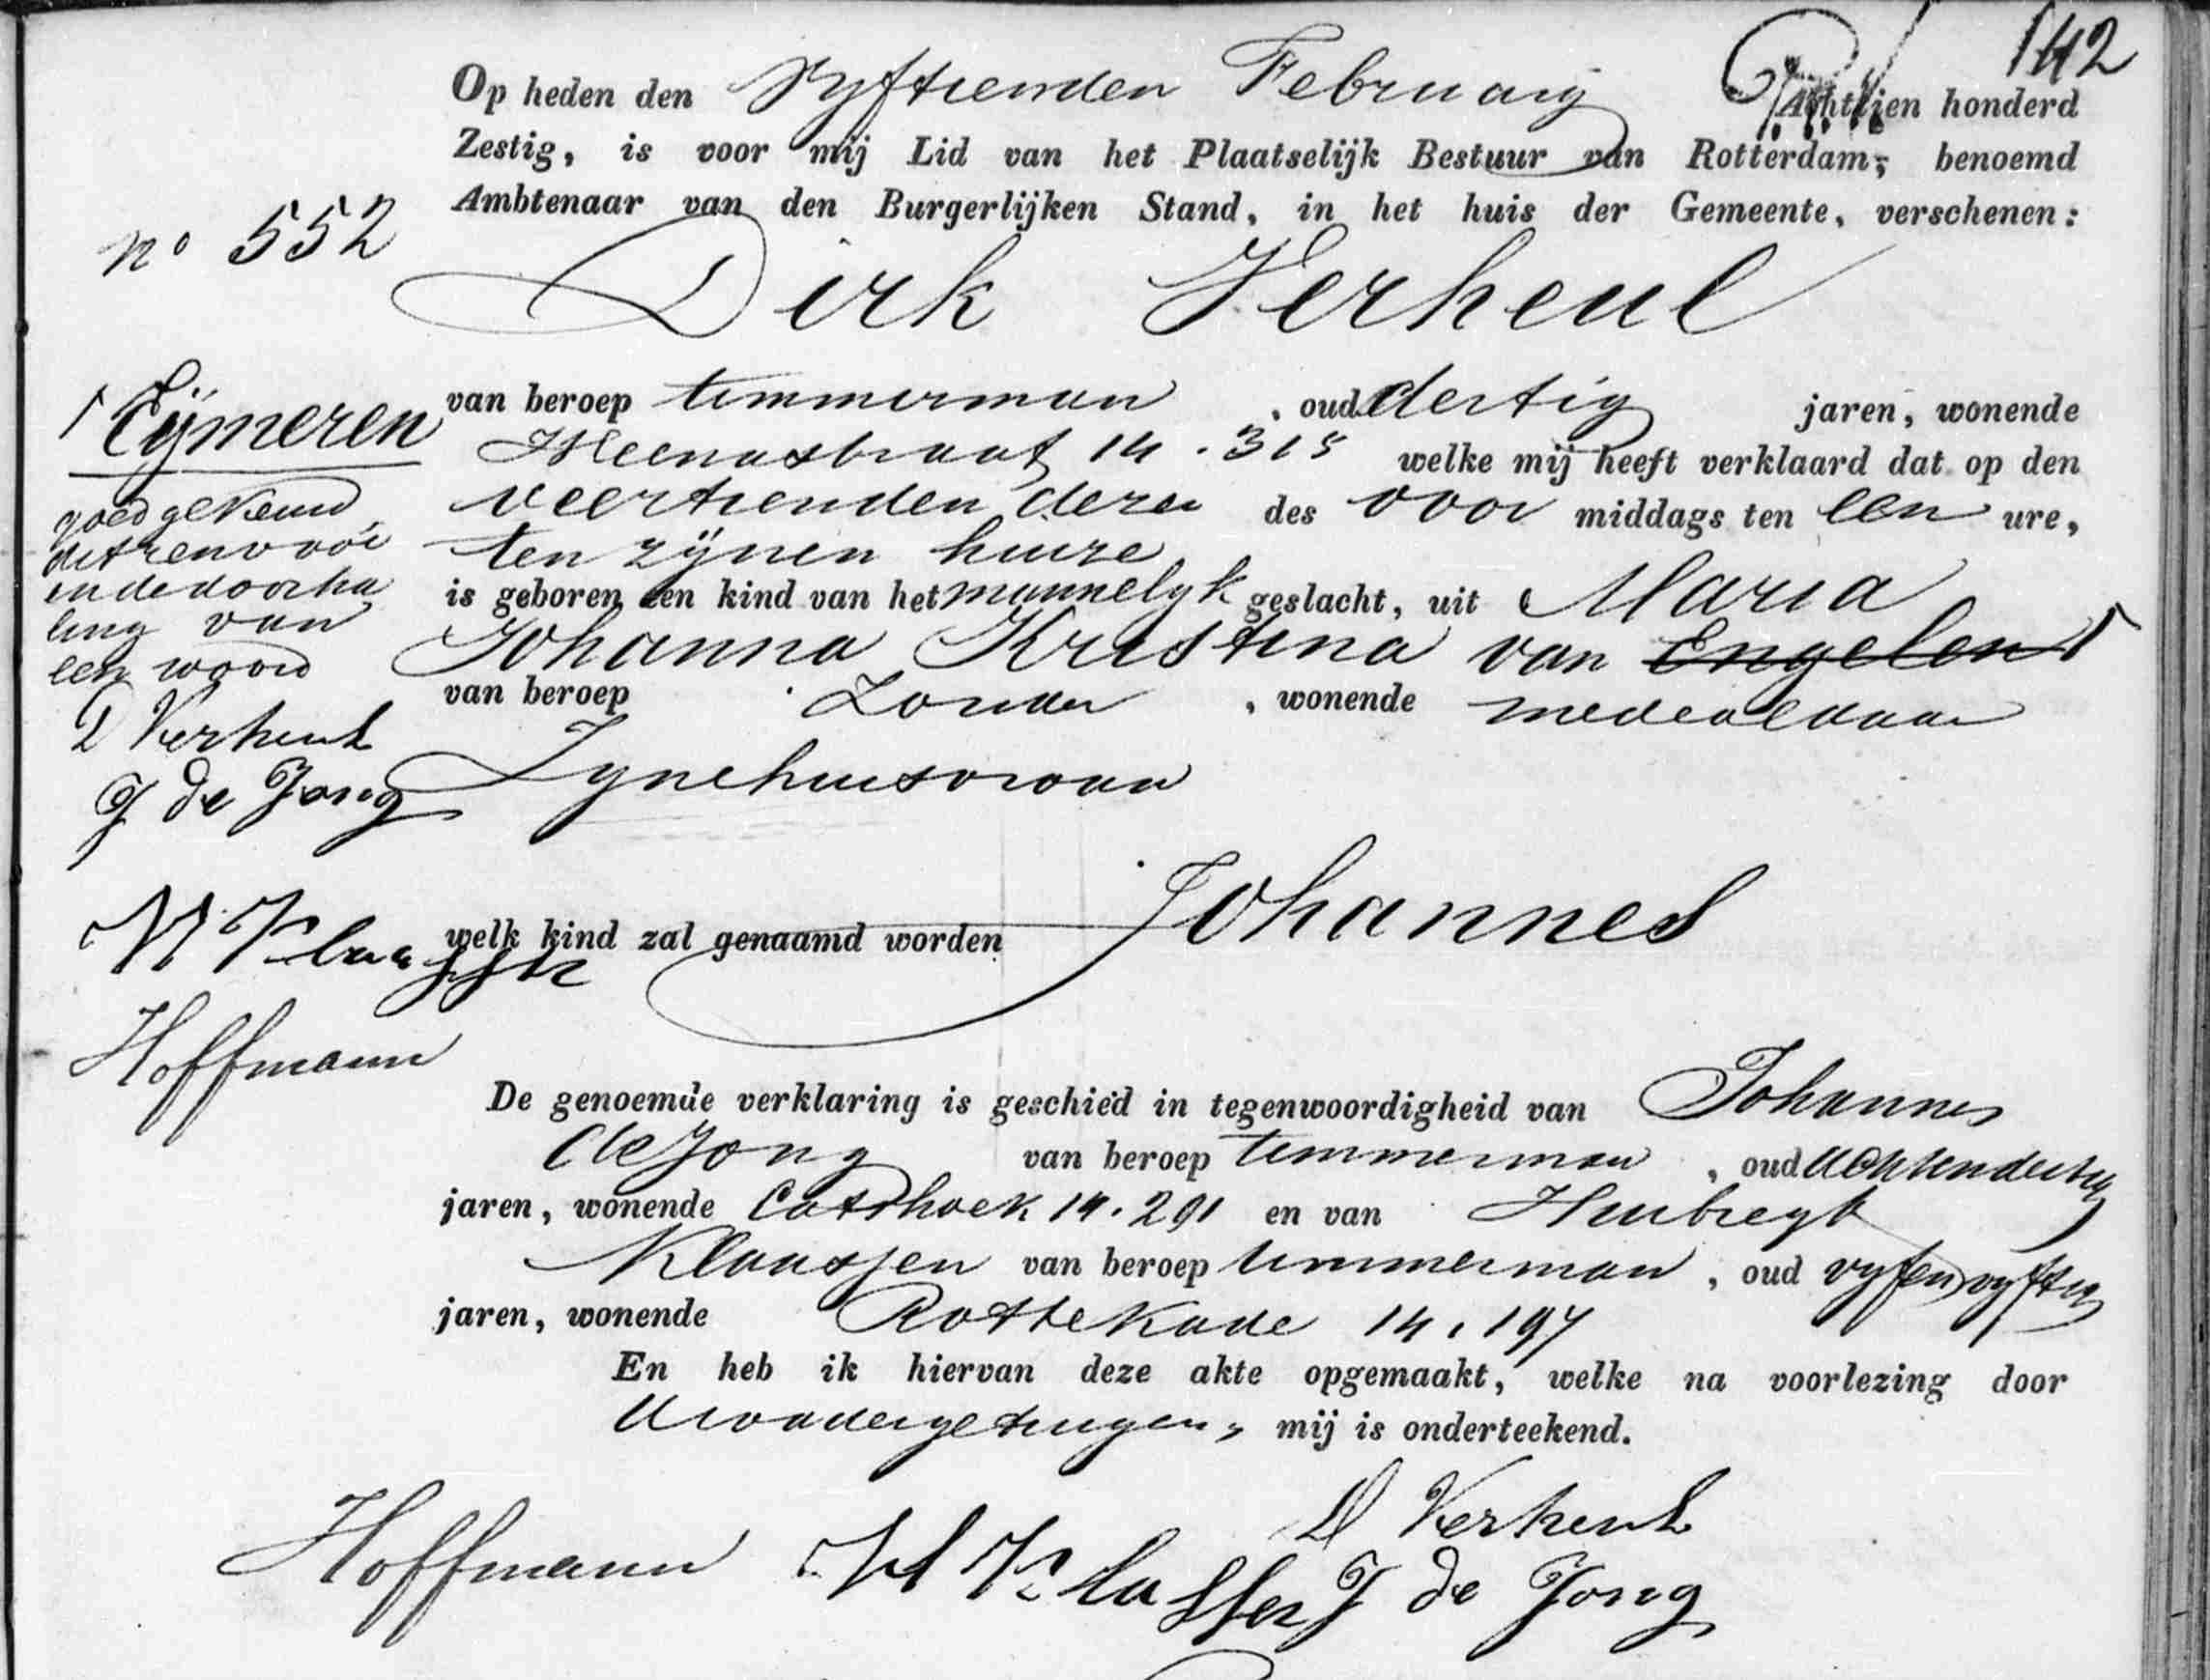 142
Op heden den Vyftienden February Achttien honderd
Zestig, is voor mij Lid van het Plaatselijk Bestuur van Rotterdam, benoemd
Ambtenaar van den Burgerlijken Stand, in het huis der Gemeente, verschenen:
no 552
Dirk Verheul
van beroep timmerman, oud dertig jaren, wonende
Heenastraat 14.315 welke mij heeft verklaard dat op den
veertienden dezer des voor middags ten een ure,
ten zijnen huize
is geboren een kind van het mannelyk geslacht, uit Maria
Johanna Kristina van Engelen
van beroep Zonder, wonende mede aldaar
Zyne huisvrouw
Eijmeren
goedgekeurd
dit renvooi
en de doorha
ling van
een woord
D Verheul
J de Jong
H Klaassen
Hoffmann
welk kind zal genaamd worden Johannes
De genoemde verklaring is geschied in tegenwoordigheid van Johannes
de Jong van beroep timmerman, oud achtendertig
jaren, wonende Catshoek 14.291 en van Huibregt
Klaassen van beroep timmerman, oud vyfenvyftig
jaren, wonende Rottekade 14.197
En heb ik hiervan deze akte opgemaakt, welke na voorlezing door
de vader getuigen, mij is onderteekend.
D Verheul
Hoffmann H Klaassen J de Jong